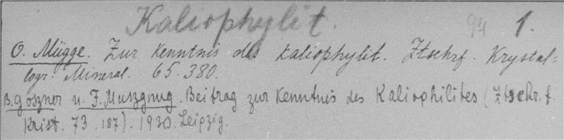 Kaliophylit. 94 1.
O. Mügge. Zur Kenntnis des Kaliophylit. Ztschrf. Krystal-
logr. Mineral. 65. 380.
B. Goszner u. F. Muszgnug. Beitrag zur Kenntnis des Kaliophilites (Ztschr. f.
Krist. 73. 187). 1930. Leipzig.